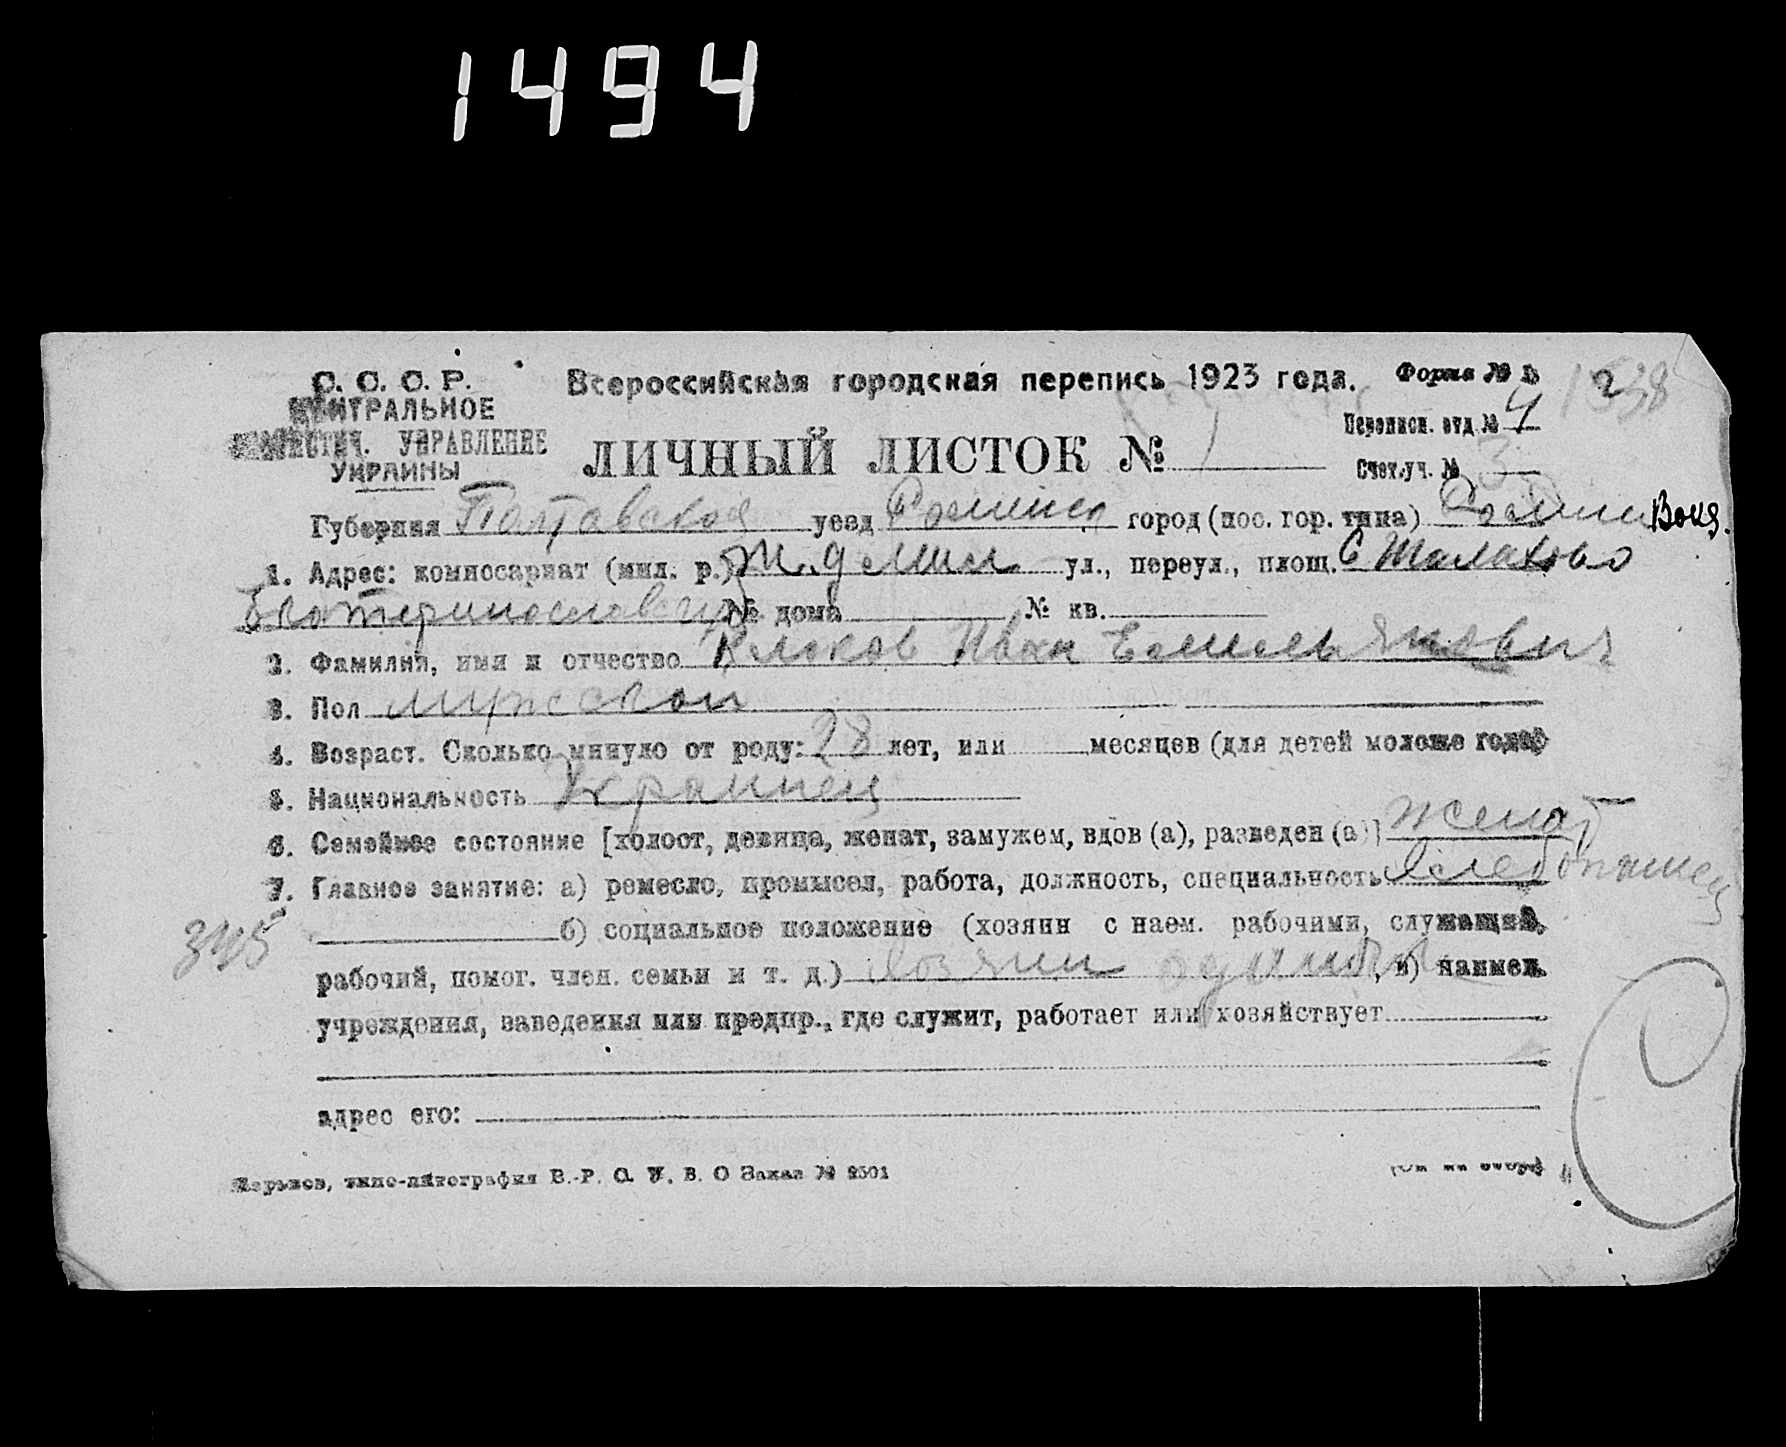 1494
С. С. С. Р.
Всероссийская городская перепись 1923 года. Форма № 2
ЦЕНТРАЛЬНОЕ
Переписн. отд. № 4
СТАТИСТИЧ. УПРАВЛЕНИЕ
ЛИЧНЫЙ ЛИСТОК № 1
УКРАИНЫ
Счет. уч. № 3
Губерния Полтавская уезд Роменск город (пос. гор. типа) Ромни
1. Адрес: комиссариат (мил. р.) ул., переул., площ. С
№ дома № кв.
2. Фамилия, имя и отчество Клоков Иван Емельянович
3. Пол мужской
4. Возраст. Сколько минуло от роду: 28 лет, или месяцев (для детей моложе года)
5. Национальность Украинец
6. Семейное состояние [холост, девица, женат, замужем, вдов (а), разведен (а)] женат
7. Главное занятие: а) ремесло, промысел, работа, должность, специальность Хлебопашец
345 б) социальное положение (хозяин с наем. рабочими, служащий,
рабочий, помог. член. семьи и т. д.) Хозяин одиночка, в) наимен.
учреждения, заведения или предпр., где служит, работает или хозяйствует
адрес его:
Харьков, типо-литография В.-Р. О. У. В. О Заказ № 2501